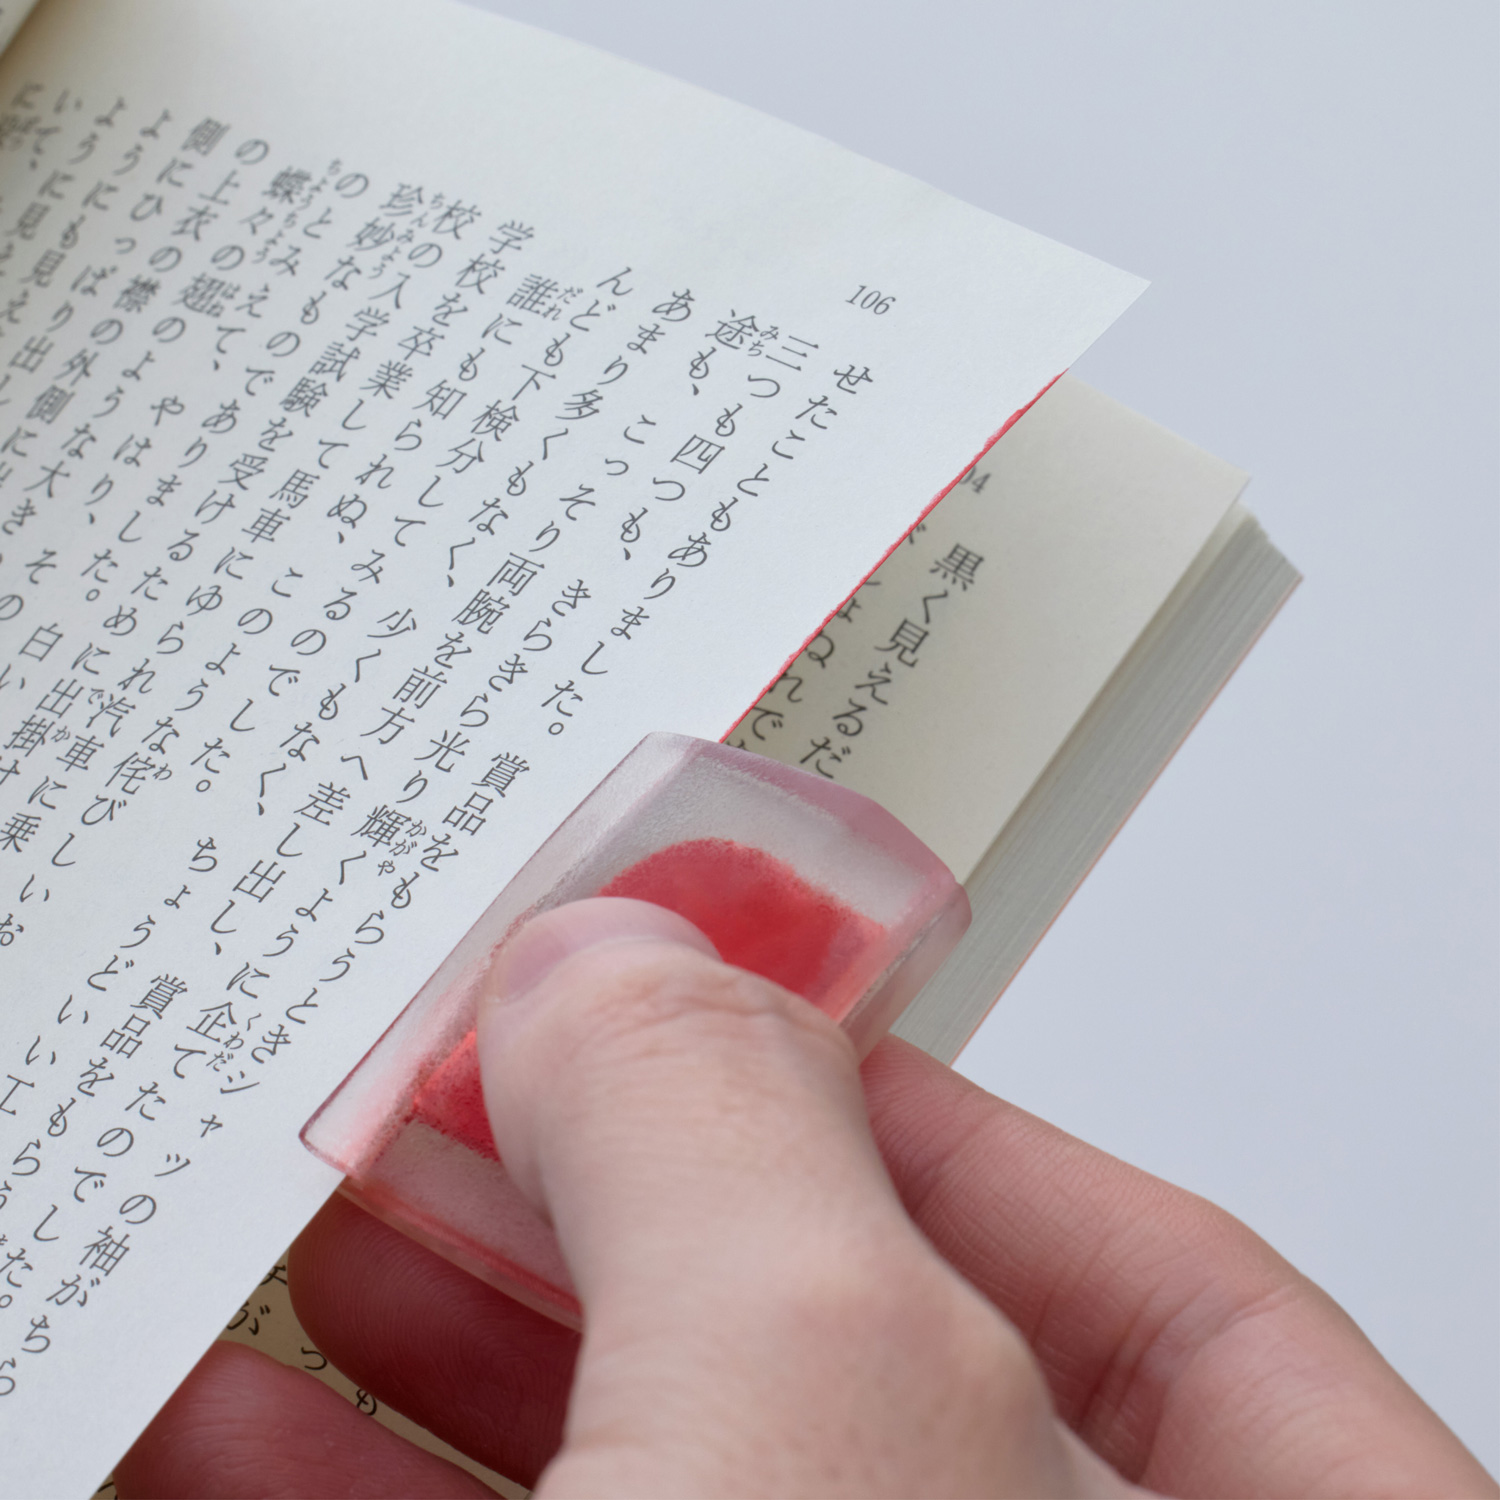 106
せたこともありました。賞品をもらうときシャツの袖がちら
三つも四つも、きらきら光り輝くように企てたのでした。
途も、こっそり両腕を前方へ差し出し、賞品をもらう
あまり多くもなく、少くもなく、ちょうどいい工
んども下検分してみるのでした。
誰にも知られぬ、このような侘びしいお
学校を卒業して馬車にゆられ汽車に乗
校の入学試験を受けるために出掛け
珍妙なものでありました。白い
のとみえて、やはり、その
蝶々の翅のような大き
の上衣の襟の外側に
側にひっぱり出し
ようにも見え
ように見え
いて、
に
黒く見えるだ